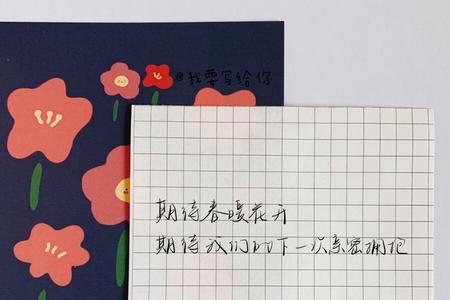 @我要写给你
期待春暖花开
期待我们的下一次亲密拥抱